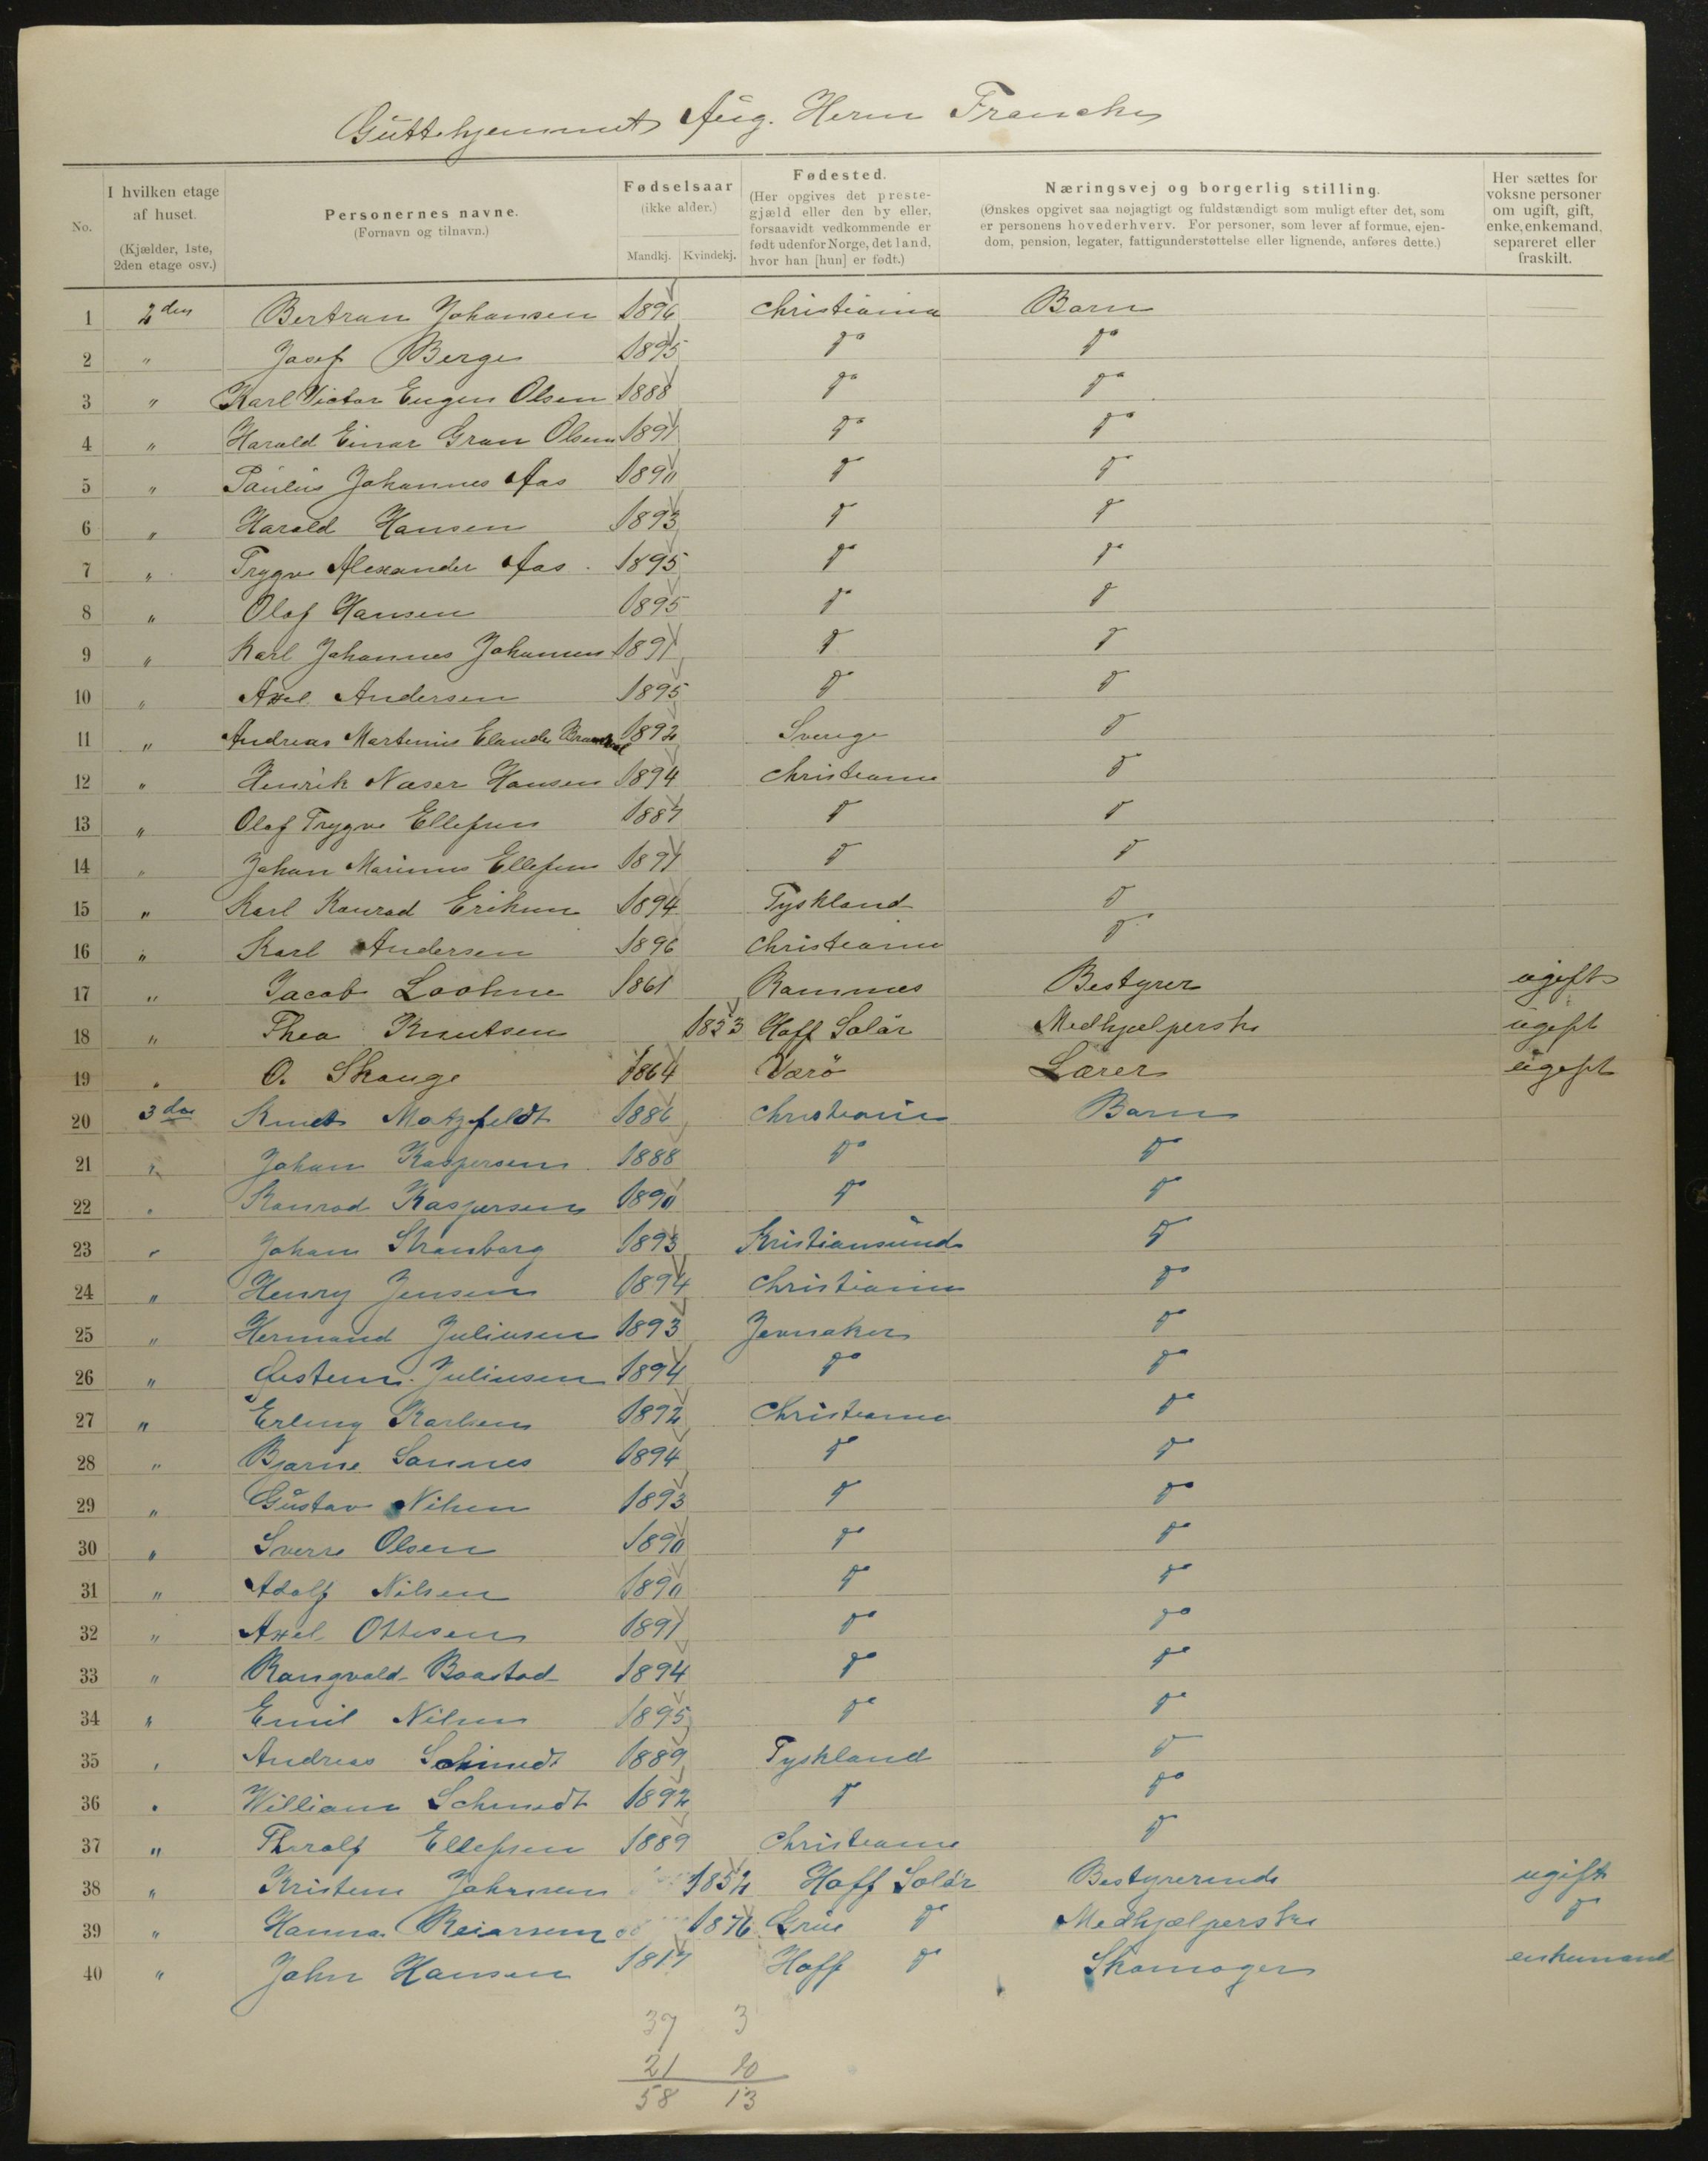 Guttehjemmet Aug. Herm Francke
No.
I hvilken etage af huset. (Kjælder, 1ste, 2den etage osv.)
Personernes navne. (Fornavn og tilnavn.)
Fødselsaar (ikke alder.) Mandkj. Kvindekj.
Fødested. (Her opgives det prestegjæld eller den by eller, forsaavidt vedkommende er født udenfor Norge, det land, hvor han [hun] er født.)
Næringsvej og borgerlig stilling. (Ønskes opgivet saa nøjagtigt og fuldstændigt som muligt efter det, som er personens hovederhverv. For personer, som lever af formue, ejendom, pension, legater, fattigunderstøttelse eller lignende, anføres dette.)
Her sættes for voksne personer om ugift, gift, enke, enkemand, separeret eller fraskilt.
1 2den Bertran Johansen 1896 Christiania Barn
2 " Josef Berge 1895 do do
3 " Karl Victor Eugen Olsen 1888 do do
4 " Harald Einar Gran Olsen 1891 do do
5 " Paulus Johannes Aas 1890 do do
6 " Harald Hansen 1893 do do
7 " Trygve Alexander Aas 1895 do do
8 " Olaf Hansen 1895 do do
9 " Karl Johannes Johansen 1891 do do
10 " Axel Andersen 1895 do do
11 " Andreas Martinius Elander 1892 Sverige do
12 " Henrik Næser Hansen 1894 Christiania do
13 " Olaf Trygve Ellefsen 1887 do do
14 " Johan Marinus Ellefsen 1891 do do
15 " Karl Konrad Eriksen 1894 Tyskland do
16 " Karl Andersen 1896 Christiania do
17 " Jacob Loohne 1861 Ramnæs Bestyrer ugift
18 " Thea Knutsen 1853 Hoff Solør Medhjælperske ugift
19 " O. Skauge 1864 Værø Lærer ugift
20 3die Knut Motzfeldt 1886 Christiania Barn
21 " Johan Kaspersen 1888 do do
22 " Konrad Kaspersen 1890 do do
23 " Johan Stranborg 1893 Kristiansund do
24 " Henry Jensen 1894 Christiania do
25 " Hermand Juliusen 1893 Jevnaker do
26 " Østen Juliusen 1894 do do
27 " Erling Karlsen 1892 Christiania do
28 " Bjarne Sannes 1894 do do
29 " Gustav Nilsen 1893 do do
30 " Sverre Olsen 1890 do do
31 " Adolf Nilsen 1890 do do
32 " Axel Ottesen 1891 do do
33 " Rangvald Baastad 1894 do do
34 " Emil Nilsen 1895 do do
35 " Andreas Schmidt 1889 Tyskland do
36 " William Schmidt 1892 do do
37 " Thoralf Ellefsen 1889 Christiania do
38 " Kristine Johnsen 1852 Hoff Solør Bestyrerinde ugift
39 " Hanna Reiersen 1876 Grue do Medhjælperske do
40 " John Hansen 1817 Hoff do Skomager enkemand
37 3
21 10
58 13